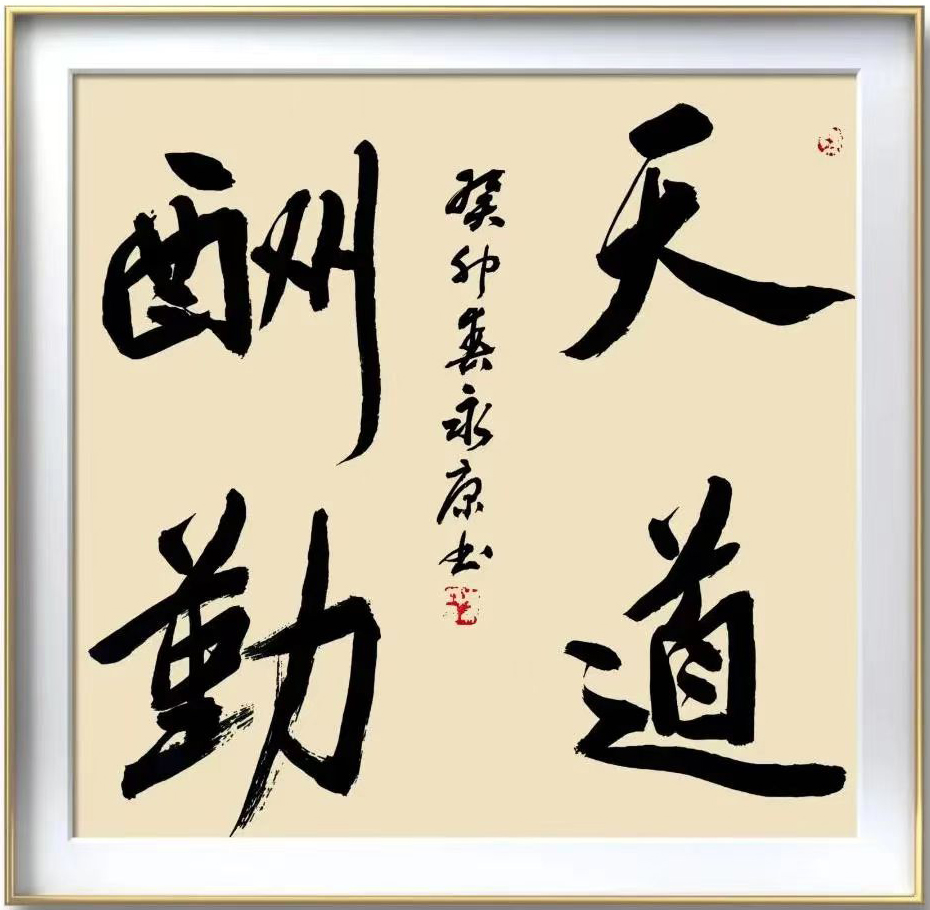 天道
酬勤
癸卯春永康书